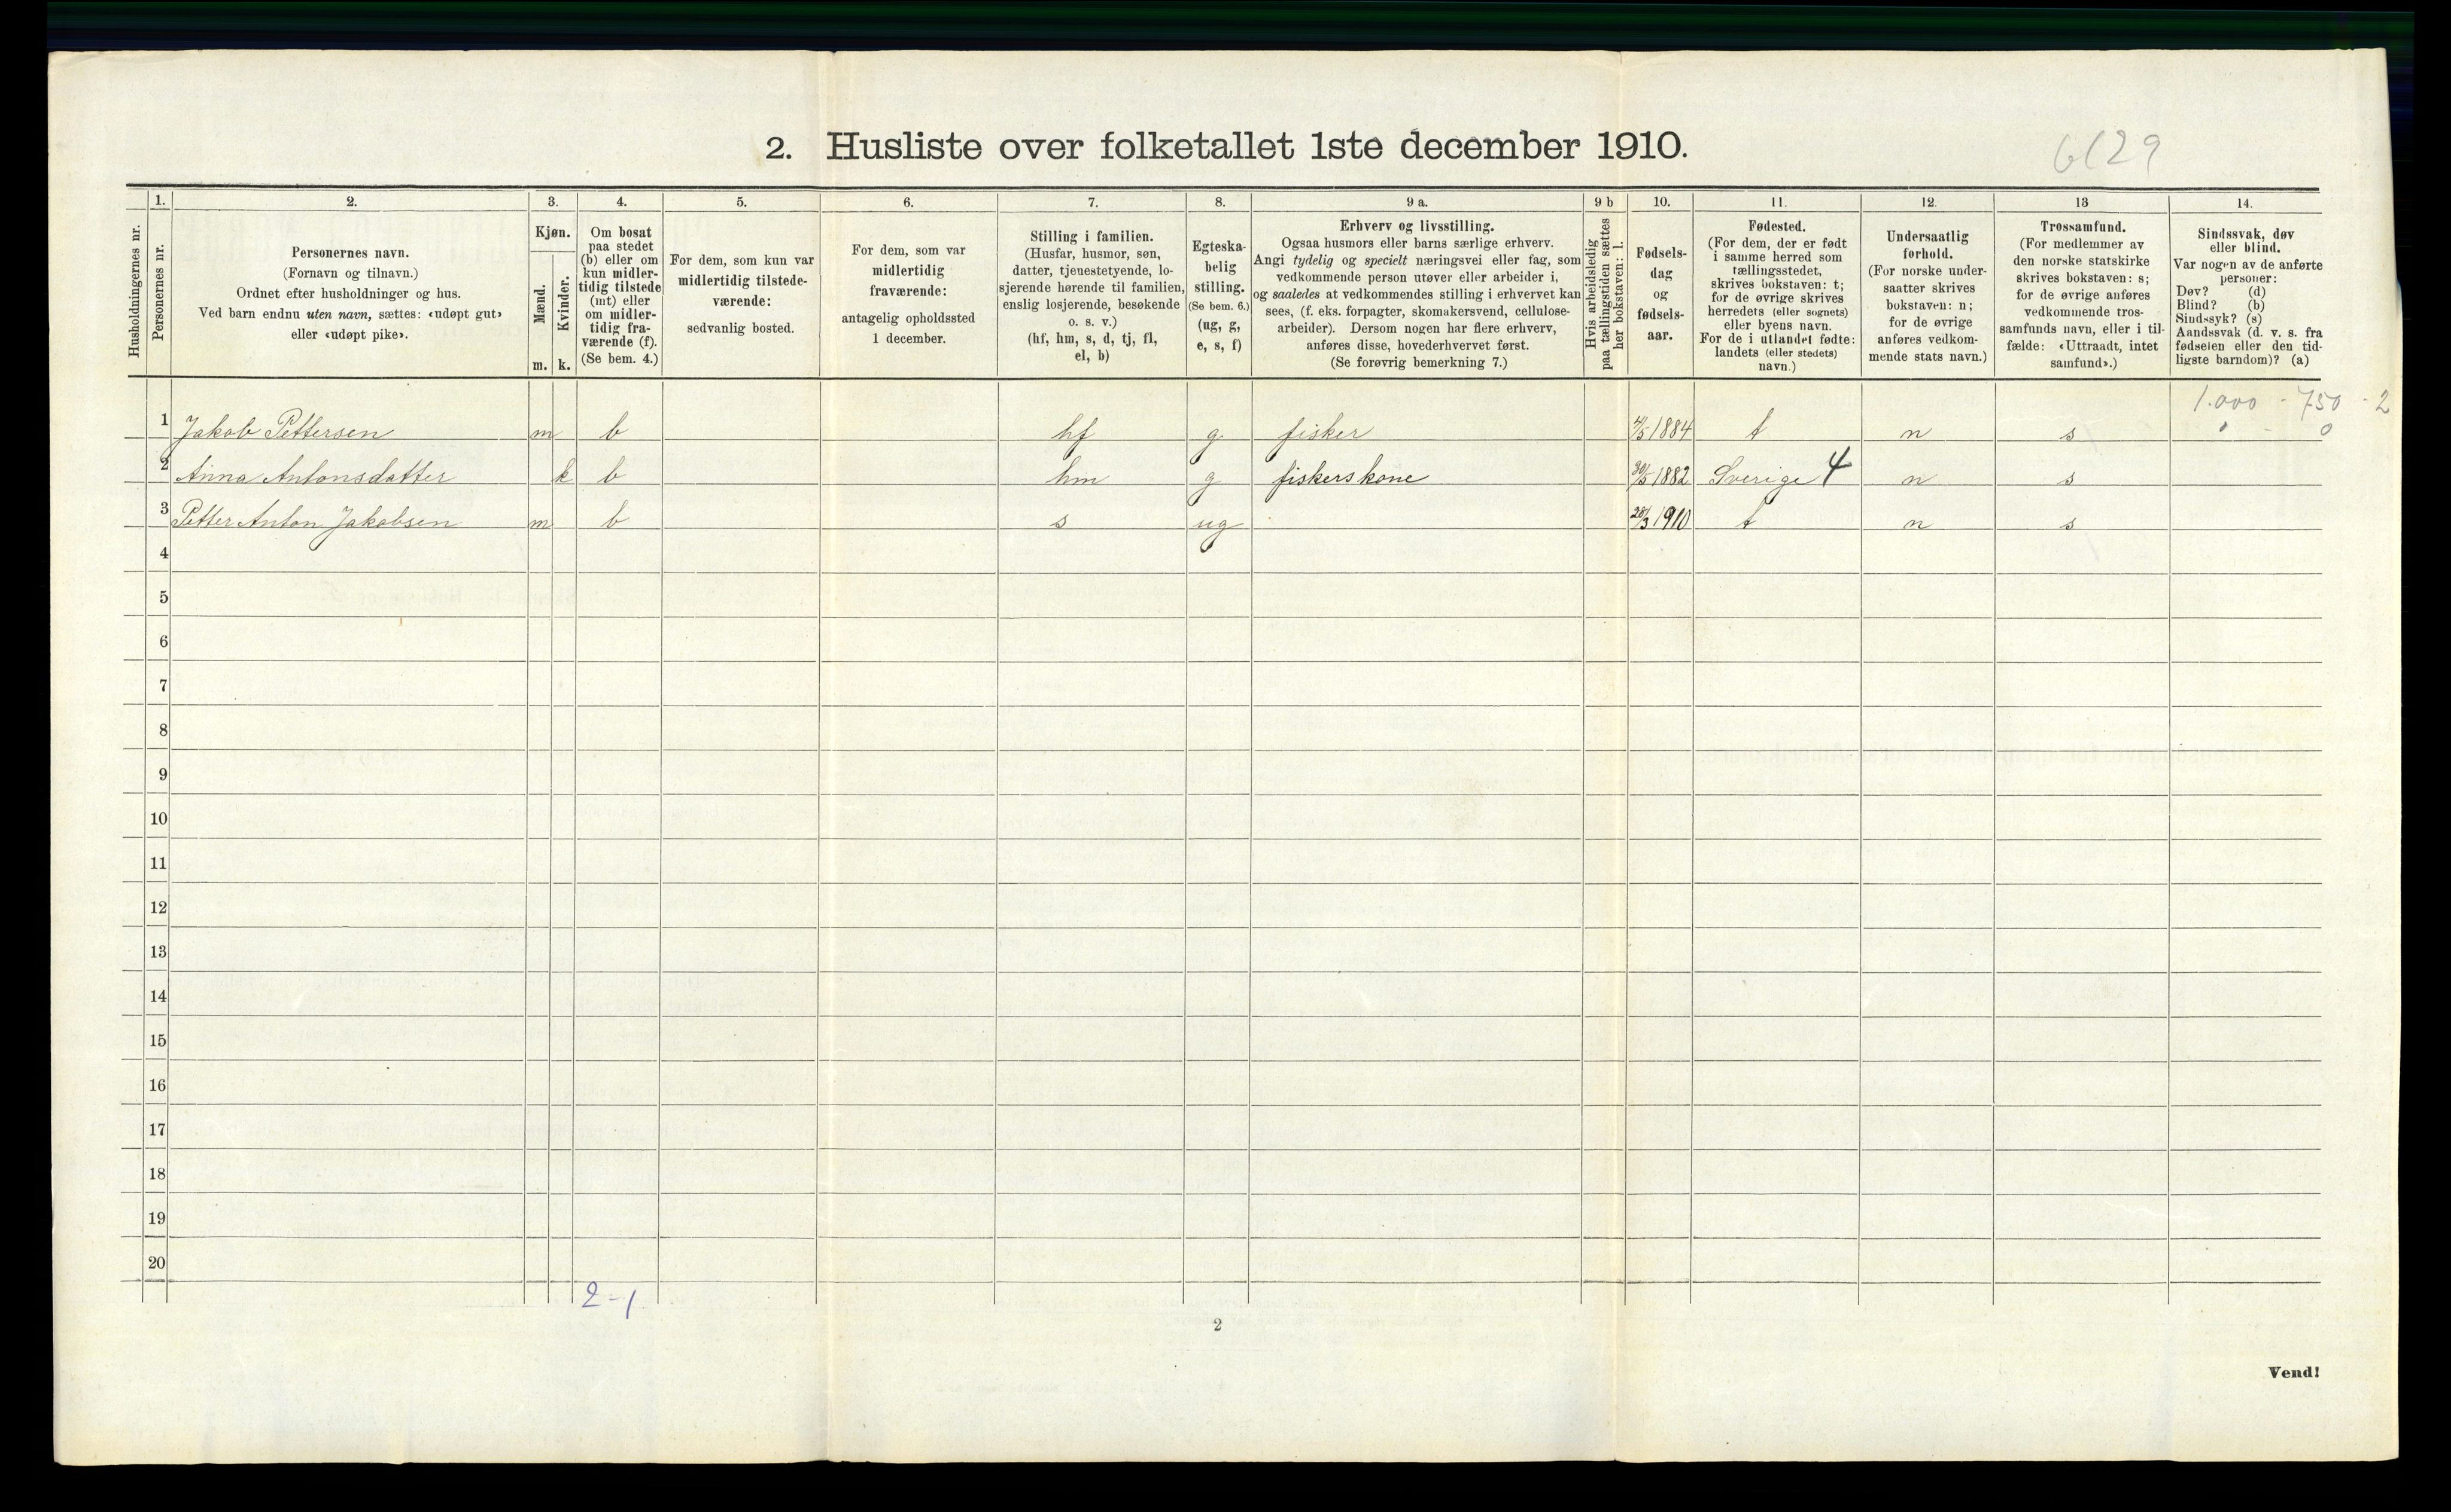 2. Husliste over folketallet 1ste december 1910.
6129
Husholdningernes nr.
1.
Personernes nr.
2.
Personernes navn.
(Fornavn og tilnavn.)
Ordnet efter husholdninger og hus.
Ved barn endnu uten navn, sættes: «udøpt gut»
eller «udøpt pike».
3.
Kjøn.
Mænd.
m.
Kvinder.
k.
4.
Om bosat
paa stedet
(b) eller om
kun midler-
tidig tilstede
(mt) eller
om midler-
tidig fra-
værende (f).
(Se bem. 4.)
5.
For dem, som kun var
midlertidig tilstede-
værende:
sedvanlig bosted.
6.
For dem, som var
midlertidig
fraværende:
antagelig opholdssted
1 december.
7.
Stilling i familien.
(Husfar, husmor, søn,
datter, tjenestetyende, lo-
sjerende hørende til familien,
enslig losjerende, besøkende
o. s. v.)
(hf, hm, s, d, tj, fl,
el, b)
8.
Egteska-
belig
stilling.
(Se bem. 6.)
(ug, g,
e, s, f)
9 a.
Erhverv og livsstilling.
Ogsaa husmors eller barns særlige erhverv.
Angi tydelig og specielt næringsvei eller fag, som
vedkommende person utøver eller arbeider i,
og saaledes at vedkommendes stilling i erhvervet kan
sees, (f. eks. forpagter, skomakersvend, cellulose-
arbeider). Dersom nogen har flere erhverv,
anføres disse, hovederhvervet først.
(Se forøvrig bemerkning 7.)
9 b
Hvis arbeidsledig
paa tællingstiden sættes
her bokstaven: l.
10.
Fødsels-
dag
og
fødsels-
aar.
11.
Fødested.
(For dem, der er født
i samme herred som
tællingsstedet,
skrives bokstaven: t;
for de øvrige skrives
herredets (eller sognets)
eller byens navn.
For de i utlandet fødte:
landets (eller stedets)
navn.)
12.
Undersaatlig
forhold.
(For norske under-
saatter skrives
bokstaven: n;
for de øvrige
anføres vedkom-
mende stats navn.)
13
Trossamfund.
(For medlemmer av
den norske statskirke
skrives bokstaven: s;
for de øvrige anføres
vedkommende tros-
samfunds navn, eller i til-
fælde: «Uttraadt, intet
samfund».)
14.
Sindssvak, døv
eller blind.
Var nogen av de anførte
personer:
Døv? (d)
Blind? (b)
Sindssyk? (s)
Aandssvak (d. v. s. fra
fødselen eller den tid-
ligste barndom)? (a)
1.000 - 750 - 2
1 Jakob Pettersen m b hf g fisker 4/5 1884 t n s
2 Anna Antonsdatter k b hm g fiskerskone 30/5 1882 Sverige 4 n s
3 Petter Anton Jakobsen m b s ug 28/3 1910 t n s
4
5
6
7
8
9
10
11
12
13
14
15
16
17
18
19
20
2-1
2
Vend!